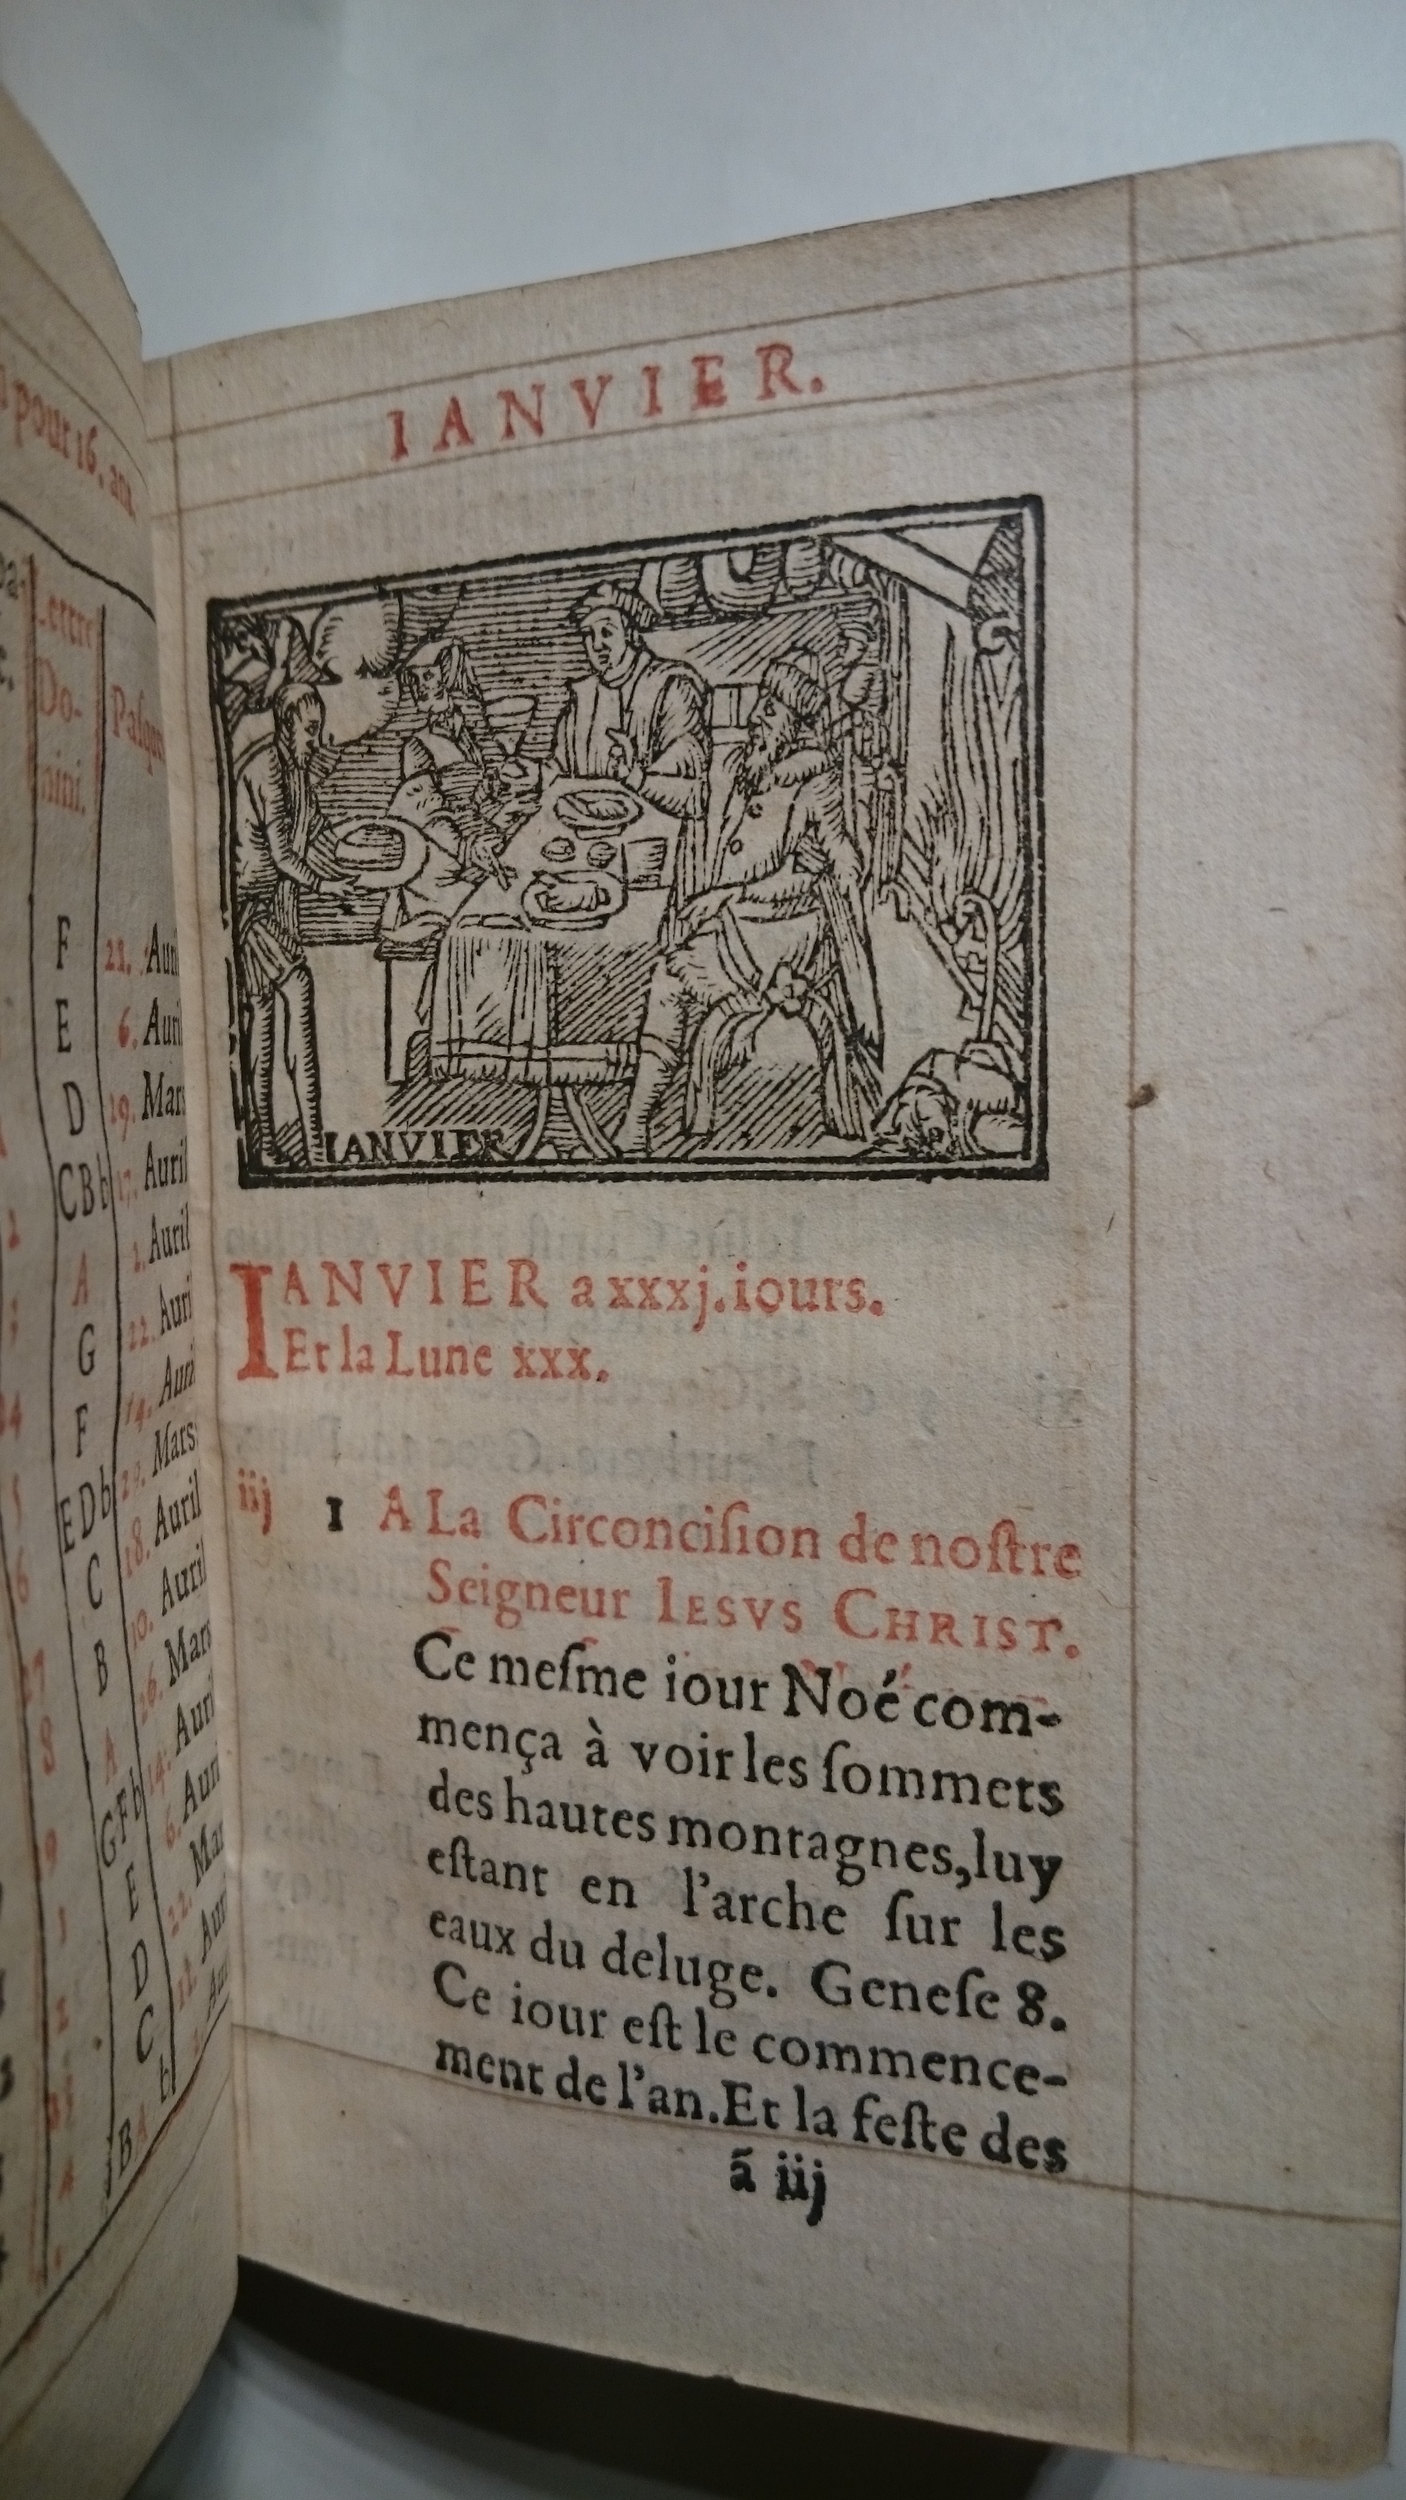 pour 16. ans
Lettre
Do-
mini.
Pasque
F 21. Auril
E 6. Auril
D 19. Mars
CB b 17. Auril
A 2. Auril
G 22. Auril
F 14. Auril
ED b 29. Mars
C 18. Auril
B 10. Auril
A 26. Mars
GF b 14. Auril
E 6. Auril
D 22. Mars
C
B A b
IANVIER.
IANVIER
IANVIER a xxxj. iours.
Et la Lune xxx.
iij 1 A La Circonciſion de noſtre
Seigneur IESVS CHRIST.
Ce meſme iour Noé com-
mença à voir les ſommets
des hautes montagnes, luy
eſtant en l'arche ſur les
eaux du deluge. Geneſe 8.
Ce iour eſt le commence-
ment de l'an. Et la feſte des
ã iij